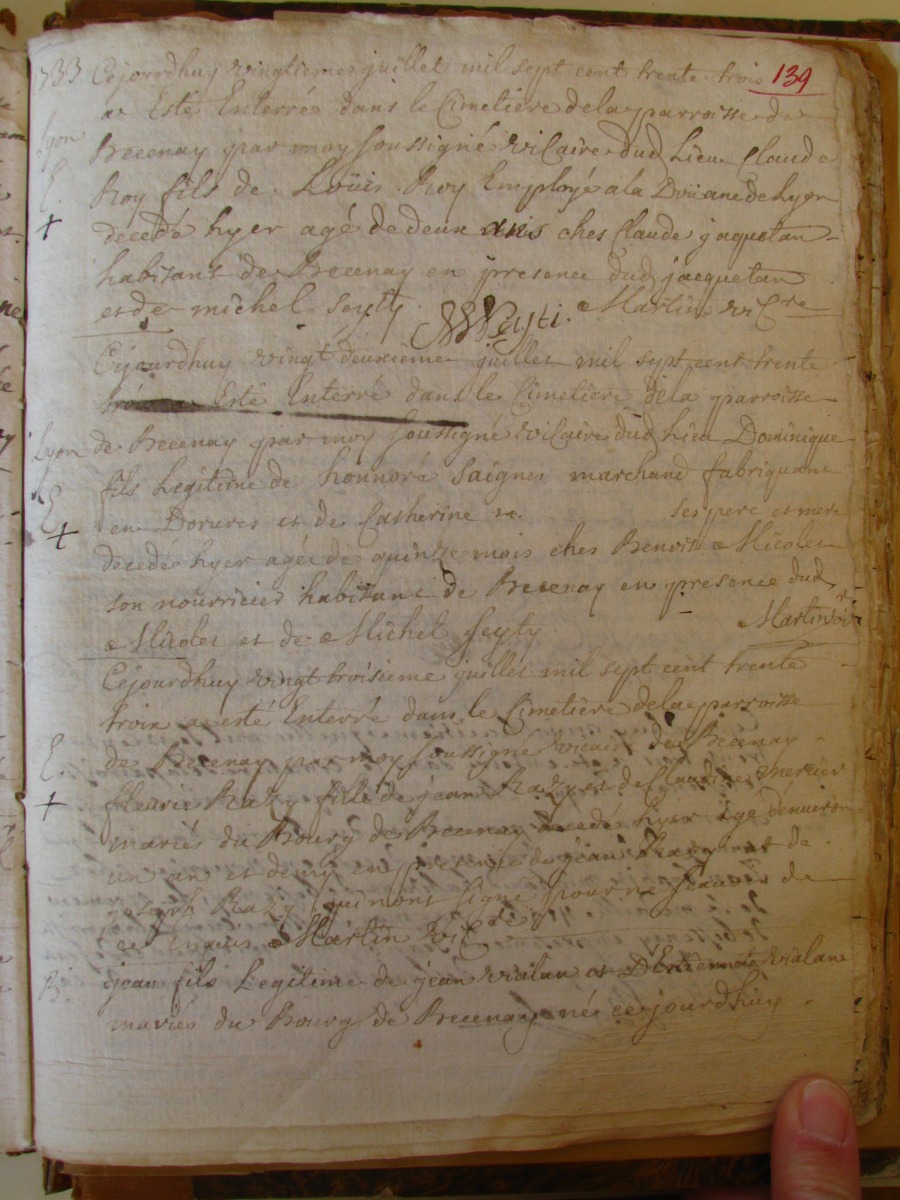 1733 Cejourdhuy vingtieme juillet mil sept cent trente trois 139
a Esté Enterré dans le Cimetiére dela parroisse de
Lyon
Becenay par moy soussigné viCaire dud Lieu Claude
E.
Roy fils de Loüis Roy Employé a la Doüane de Lyon
+ decedé hyer agé de deux ans ches Claude jaquetan
habitant de Becenay en presence dud jacquetan
et de michel Seyty. MSeyti. Martin viCre
Cejourdhuy vingt deuxieme juillet mil sept cent trente
Esté Enterré dans le Cimetiére dela parroisse
Lyon de Becenay par moy soussigné viCaire dud Lieu Dominique
fils Legitime de honnoré Saignes marchand fabriquant
E. en Dorures et de Catherine ses pere et mere
+ decedé hyer agé de quinze mois ches Benoit Nicolet
son nourricier habitant de Becenay en presence dud
Nicolet et de Michel Seyty Martin vi
Cejourdhuy vingt troisieme juillet mil sept cent trente
trois a esté Enterré dans le Cimetiére dela parroisse
E. de Becenay par moy soussigné vicaire du Becenay
+ fleurie Razy fille de jean Razy et de Claudine mercier
mariés du Bourg de Becenay decedé hyer agé denviron
un an et demy en presence de jean Razy et de
joseph Razy qui nont signé pour ne sçavoir de
ce Enquis Martin viCre
B. jean fils Legitime de jean vialan et DEstiennete vialan
mariés du Bourg de Becenay né ce jourdhuy